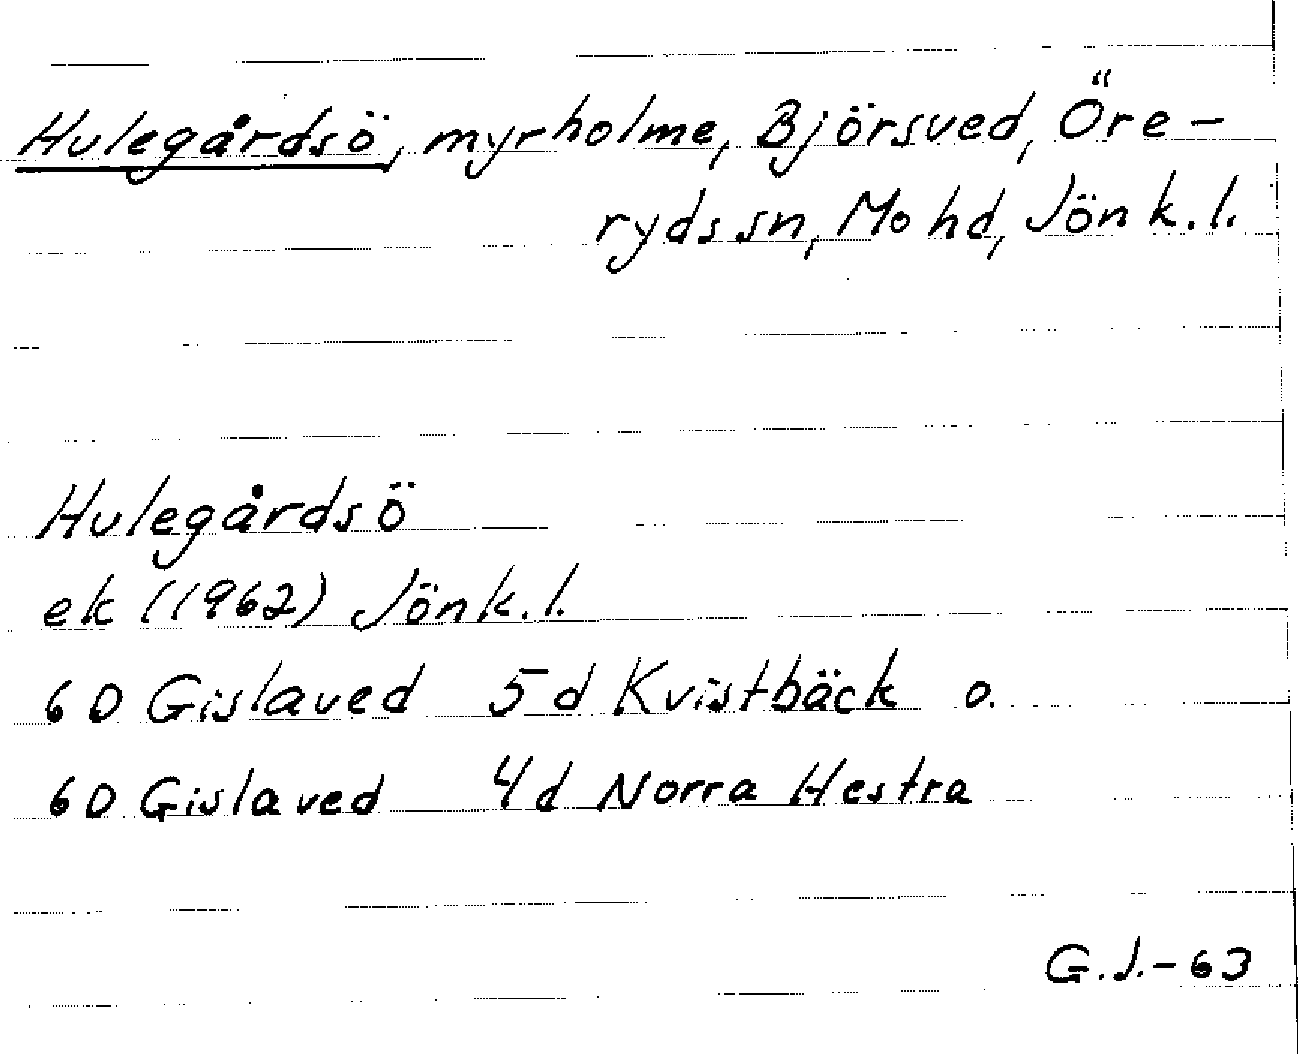 Hulegårdsö, myrholme, Björsved, Öre-
ryds sn, Mo hd, Jönk. l.
Hulegårdsö
ek (1962) Jönk. l.
6D Gislaved 5d Kvistbäck o.
6D Gislaved 4d Norra Hestra
G.J.-63